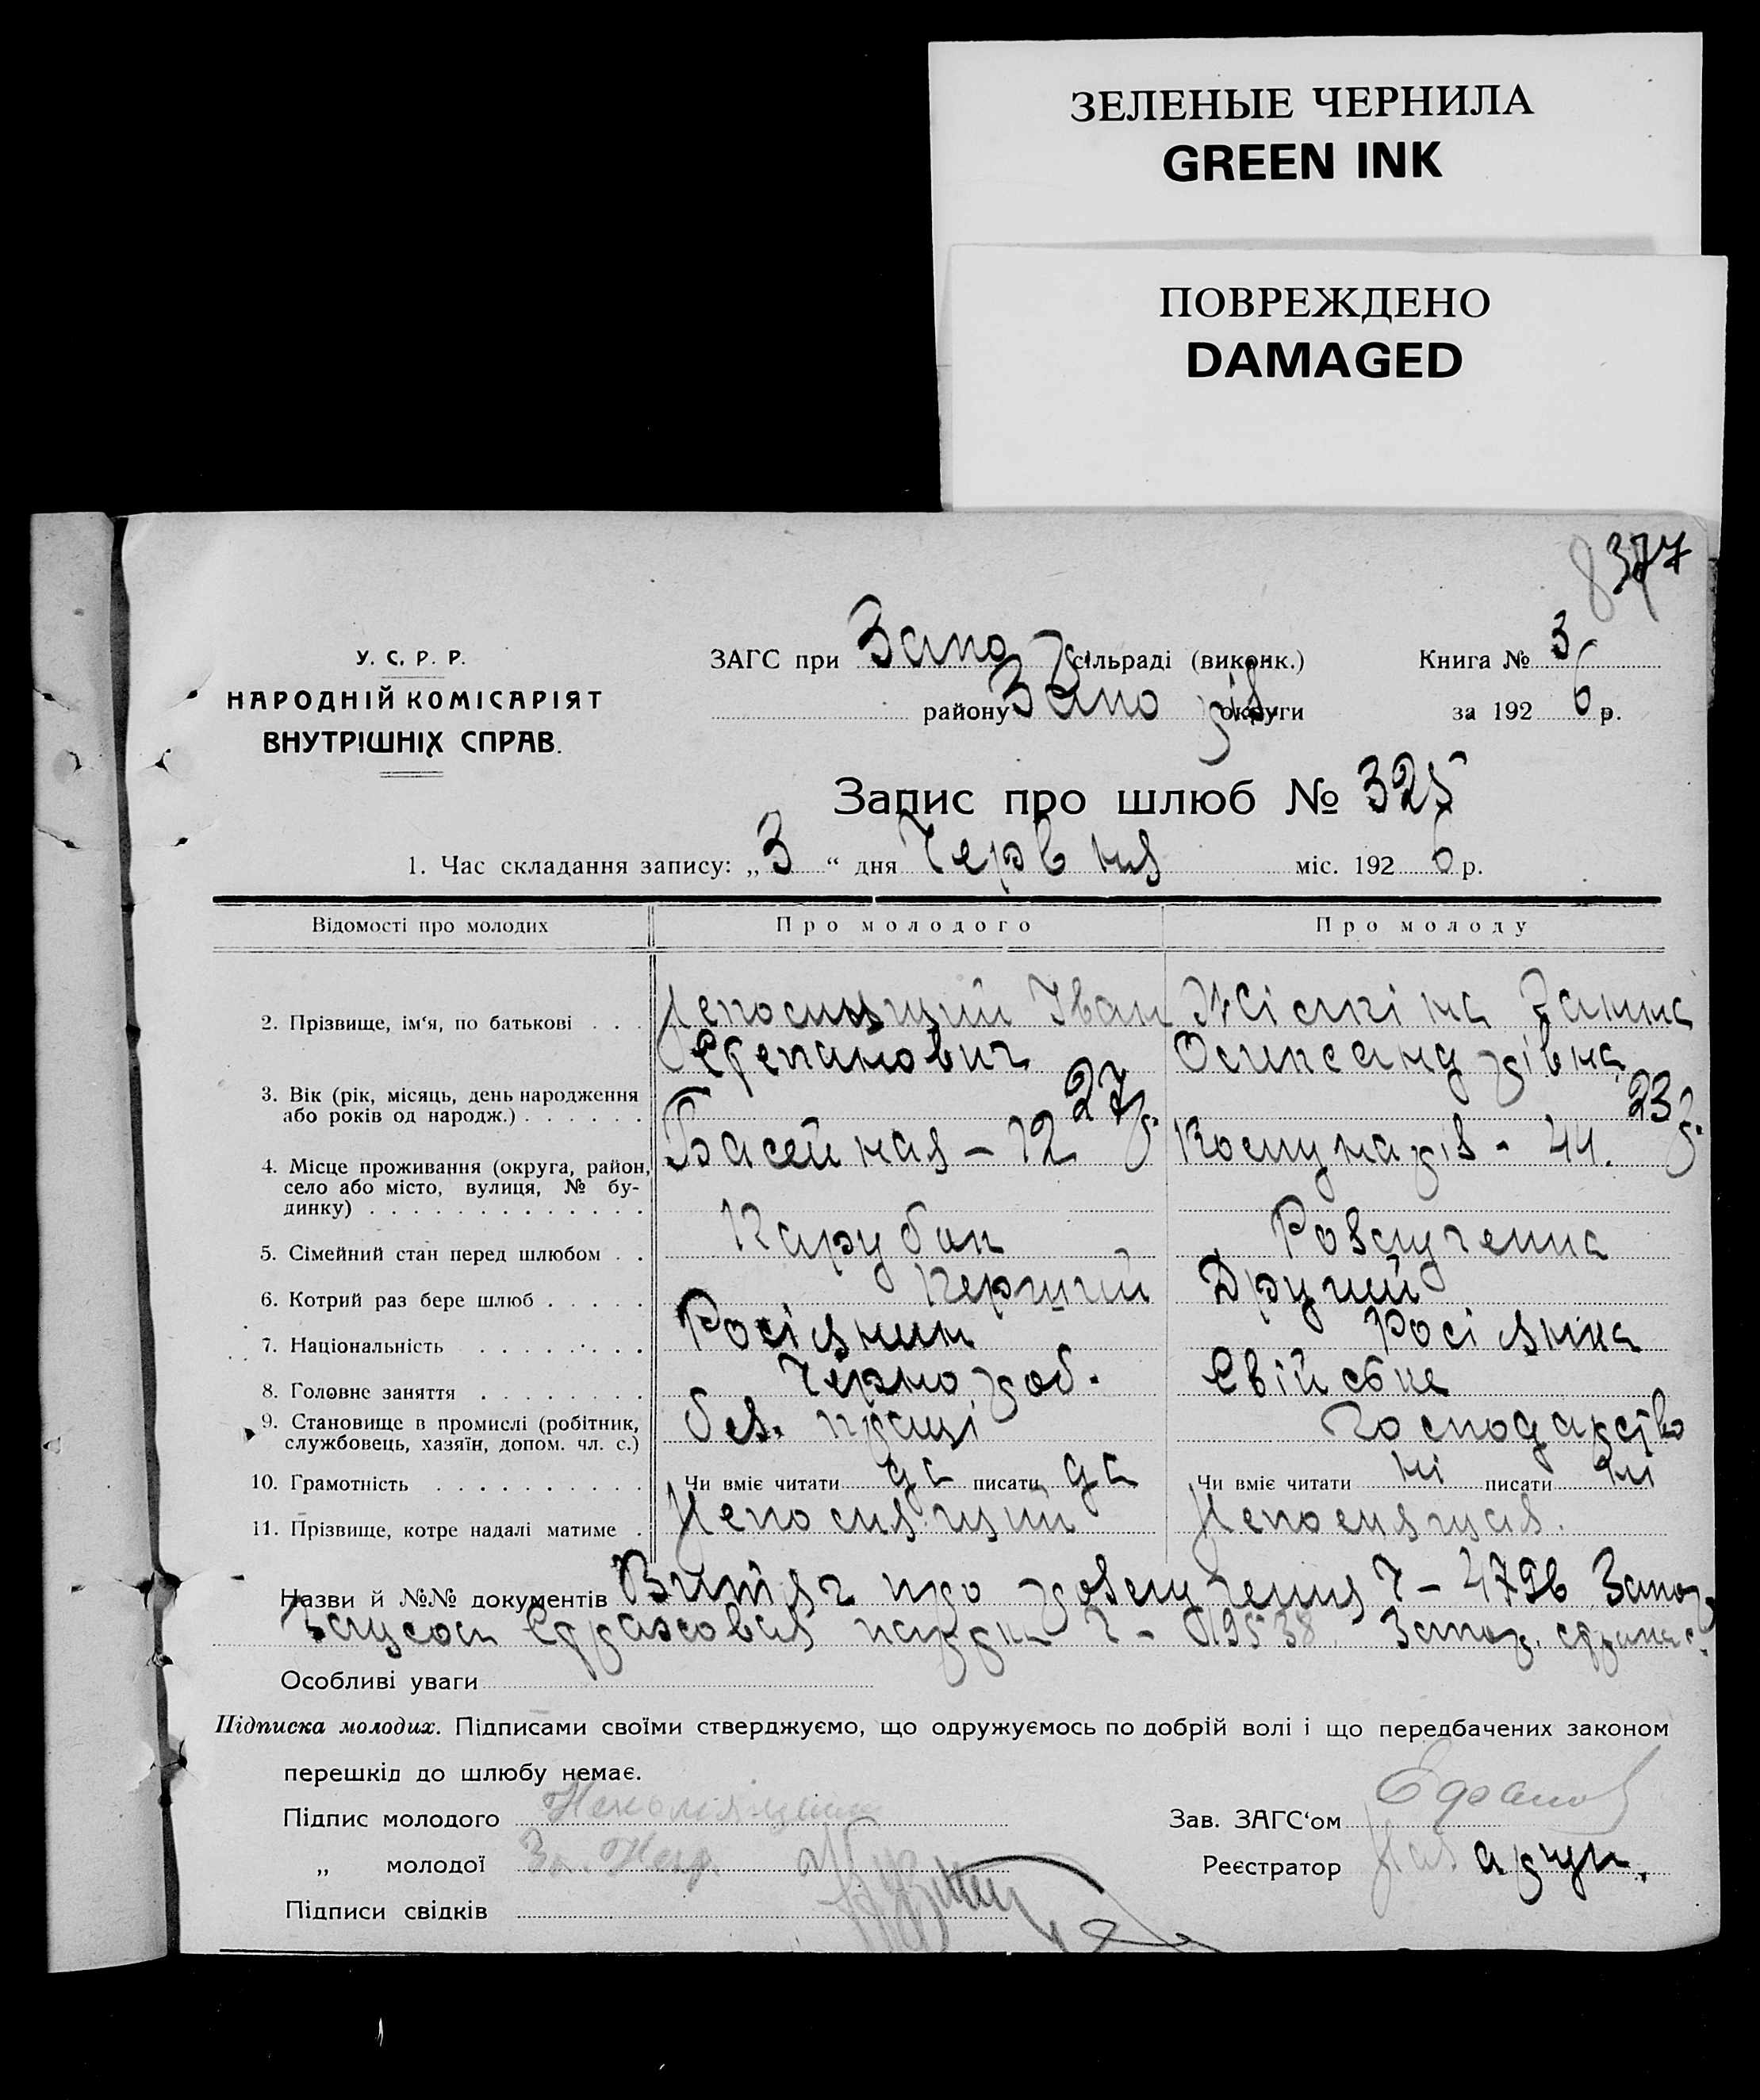 ЗЕЛЕНЫЕ ЧЕРНИЛА
GREEN INK
ПОВРЕЖДЕНО
DAMAGED
377
У. С. Р. Р.
НАРОДНІЙ КОМІСАРІЯТ
ВНУТРІШНІХ СПРАВ.
ЗАГС при Запо сільраді (виконк.) Книга № 3
району Запоріз округи за 192 6 р.
Запис про шлюб № 325
1. Час складання запису: „ 3 “ дня Червня міс. 192 6 р.
Відомості про молодих Про молодого Про молоду
2. Прізвище, ім‘я, по батькові . . . Іван Ганна
Степанович
3. Вік (рік, місяць, день народження 27 р. 23 р.
або років од народж.) . . . . . .
4. Місце проживання (округа, район, Басейная – 12 44.
село або місто, вулиця, № бу-
динку) . . . . . . . . . . . . .
5. Сімейний стан перед шлюбом . . Парубок Розлученна
6. Котрий раз бере шлюб . . . . . Перший Другий
7. Національність . . . . . . . . Росіянин Росіянка
8. Головне заняття . . . . . . . . Чернороб. Свійське
9. Становище в промислі (робітник, без. праці господарство
службовець, хазяїн, допом. чл. с.)
10. Грамотність . . . . . . . . . . Чи вміє читати да писати да Чи вміє читати ні писати ні
11. Прізвище, котре надалі матиме . Непомнящий Непомнящая.
Назви й №№ документів Витяг про розлучення Ч – 4796 Запор
Страховая Ч – Запор. страхк.
Особливі уваги
Підписка молодих. Підписами своїми стверджуємо, що одружуємось по добрій волі і що передбачених законом
перешкід до шлюбу немає.
Підпис молодого Зав. ЗАГС‘ом
„ молодої За. Нег. Реєстратор
Підписи свідків